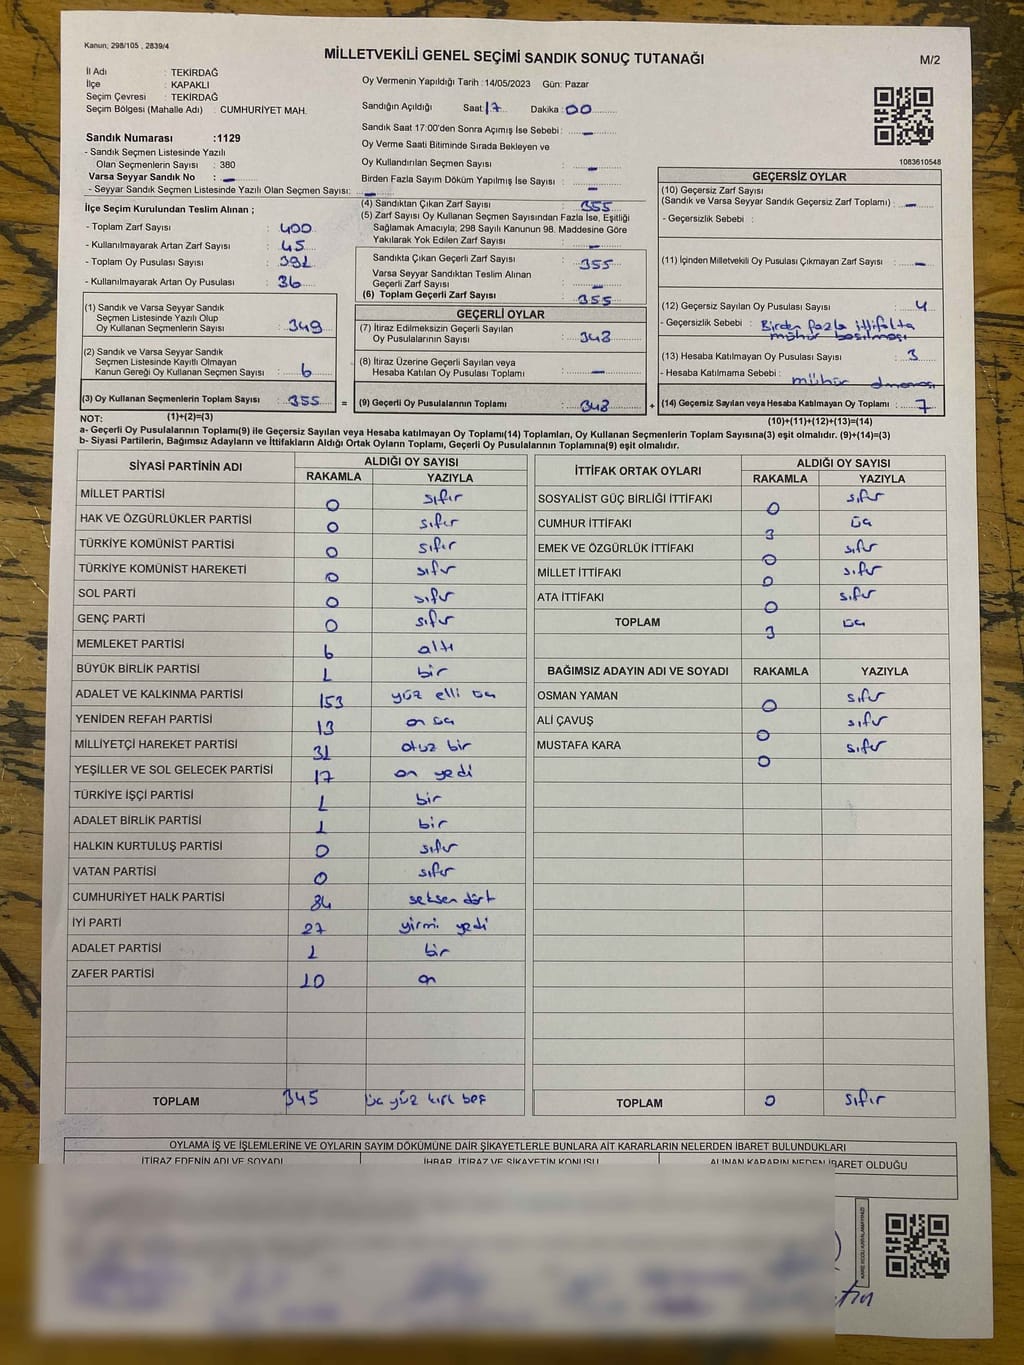 Kanun; 298/105 , 2839/4
MİLLETVEKİLİ GENEL SEÇİMİ SANDIK SONUÇ TUTANAĞI
M/2
İl Adı : TEKİRDAĞ
İlçe : KAPAKLI
Seçim Çevresi : TEKİRDAĞ
Seçim Bölgesi (Mahalle Adı) : CUMHURİYET MAH.
Sandık Numarası :1129
- Sandık Seçmen Listesinde Yazılı
Olan Seçmenlerin Sayısı : 380
Varsa Seyyar Sandık No : -
- Seyyar Sandık Seçmen Listesinde Yazılı Olan Seçmen Sayısı: -
Oy Vermenin Yapıldığı Tarih :14/05/2023 Gün: Pazar
Sandığın Açıldığı Saat:17 Dakika :00
Sandık Saat 17:00'den Sonra Açımış İse Sebebi: -
Oy Verme Saati Bitiminde Sırada Bekleyen ve
Oy Kullandırılan Seçmen Sayısı : -
Birden Fazla Sayım Döküm Yapılmış İse Sayısı : -
1083610548
İlçe Seçim Kurulundan Teslim Alınan ;
- Toplam Zarf Sayısı : 400
- Kullanılmayarak Artan Zarf Sayısı : 45
- Toplam Oy Pusulası Sayısı : 391
- Kullanılmayarak Artan Oy Pusulası : 36
(1) Sandık ve Varsa Seyyar Sandık
Seçmen Listesinde Yazılı Olup
Oy Kullanan Seçmenlerin Sayısı : 349
(2) Sandık ve Varsa Seyyar Sandık
Seçmen Listesinde Kayıtlı Olmayan
Kanun Gereği Oy Kullanan Seçmen Sayısı : 6
(3) Oy Kullanan Seçmenlerin Toplam Sayısı : 355 =
(1)+(2)=(3)
(4) Sandıktan Çıkan Zarf Sayısı : 355
(5) Zarf Sayısı Oy Kullanan Seçmen Sayısından Fazla İse, Eşitliği
Sağlamak Amacıyla; 298 Sayılı Kanunun 98. Maddesine Göre
Yakılarak Yok Edilen Zarf Sayısı : -
Sandıkta Çıkan Geçerli Zarf Sayısı : 355
Varsa Seyyar Sandıktan Teslim Alınan
Geçerli Zarf Sayısı : -
(6) Toplam Geçerli Zarf Sayısı : 355
GEÇERLİ OYLAR
(7) İtiraz Edilmeksizin Geçerli Sayılan
Oy Pusulalarının Sayısı : 348
(8) İtiraz Üzerine Geçerli Sayılan veya
Hesaba Katılan Oy Pusulası Toplamı : -
(9) Geçerli Oy Pusulalarının Toplamı : 348 +
GEÇERSİZ OYLAR
(10) Geçersiz Zarf Sayısı
(Sandık ve Varsa Seyyar Sandık Geçersiz Zarf Toplamı) : -
- Geçersizlik Sebebi :
(11) İçinden Milletvekili Oy Pusulası Çıkmayan Zarf Sayısı : -
(12) Geçersiz Sayılan Oy Pusulası Sayısı : 4
- Geçersizlik Sebebi : Birden fazla ittifakta
mühür basılması
(13) Hesaba Katılmayan Oy Pusulası Sayısı : 3
- Hesaba Katılmama Sebebi : mühür olmaması
(14) Geçersiz Sayılan veya Hesaba Katılmayan Oy Toplamı : 7
(10)+(11)+(12)+(13)=(14)
NOT:
a- Geçerli Oy Pusulalarının Toplamı(9) ile Geçersiz Sayılan veya Hesaba katılmayan Oy Toplamı(14) Toplamları, Oy Kullanan Seçmenlerin Toplam Sayısına(3) eşit olmalıdır. (9)+(14)=(3)
b- Siyasi Partilerin, Bağımsız Adayların ve İttifakların Aldığı Ortak Oyların Toplamı, Geçerli Oy Pusulalarının Toplamına(9) eşit olmalıdır.
SİYASİ PARTİNİN ADI ALDIĞI OY SAYISI
RAKAMLA YAZIYLA
MİLLET PARTİSİ 0 sıfır
HAK VE ÖZGÜRLÜKLER PARTİSİ 0 sıfır
TÜRKİYE KOMÜNİST PARTİSİ 0 sıfır
TÜRKİYE KOMÜNİST HAREKETİ 0 sıfır
SOL PARTİ 0 sıfır
GENÇ PARTİ 0 sıfır
MEMLEKET PARTİSİ 6 altı
BÜYÜK BİRLİK PARTİSİ 1 bir
ADALET VE KALKINMA PARTİSİ 153 yüz elli üç
YENİDEN REFAH PARTİSİ 13 on üç
MİLLİYETÇİ HAREKET PARTİSİ 31 otuz bir
YEŞİLLER VE SOL GELECEK PARTİSİ 17 on yedi
TÜRKİYE İŞÇİ PARTİSİ 1 bir
ADALET BİRLİK PARTİSİ 1 bir
HALKIN KURTULUŞ PARTİSİ 0 sıfır
VATAN PARTİSİ 0 sıfır
CUMHURİYET HALK PARTİSİ 84 seksen dört
İYİ PARTİ 27 yirmi yedi
ADALET PARTİSİ 1 bir
ZAFER PARTİSİ 10 on
TOPLAM 345 üç yüz kırk beş
İTTİFAK ORTAK OYLARI ALDIĞI OY SAYISI
RAKAMLA YAZIYLA
SOSYALİST GÜÇ BİRLİĞİ İTTİFAKI 0 sıfır
CUMHUR İTTİFAKI 3 üç
EMEK VE ÖZGÜRLÜK İTTİFAKI 0 sıfır
MİLLET İTTİFAKI 0 sıfır
ATA İTTİFAKI 0 sıfır
TOPLAM 3 üç
BAĞIMSIZ ADAYIN ADI VE SOYADI RAKAMLA YAZIYLA
OSMAN YAMAN 0 sıfır
ALİ ÇAVUŞ 0 sıfır
MUSTAFA KARA 0 sıfır
TOPLAM 0 sıfır
OYLAMA İŞ VE İŞLEMLERİNE VE OYLARIN SAYIM DÖKÜMÜNE DAİR ŞİKAYETLERLE BUNLARA AİT KARARLARIN NELERDEN İBARET BULUNDUKLARI
İTİRAZ EDENİN ADI VE SOYADI İHBAR, İTİRAZ VE ŞİKAYETİN KONUSU ALINAN KARARIN NEDEN İBARET OLDUĞU